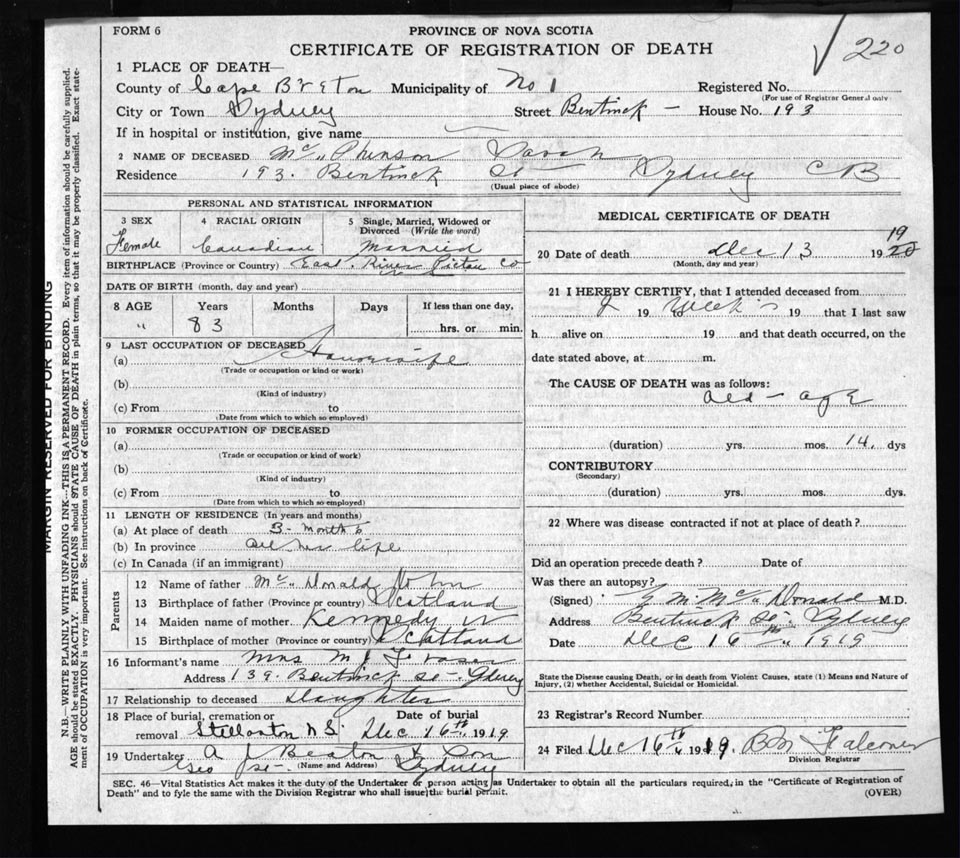 FORM 6
PROVINCE OF NOVA SCOTIA
CERTIFICATE OF REGISTRATION OF DEATH
220
1 PLACE OF DEATH—
County of Cape Breton Municipality of No 1 Registered No.
(For use of Registrar General only)
City or Town Sydney Street Bentinck - House No. 193
If in hospital or institution, give name
2 NAME OF DECEASED Mc" Pherson Sarah
Residence 193. Bentinck St Sydney CB
(Usual place of abode)
PERSONAL AND STATISTICAL INFORMATION
3 SEX Female
4 RACIAL ORIGIN Canadian
5 Single, Married, Widowed or Divorced (Write the word) Married
BIRTHPLACE (Province or Country) East River Pictou Co
DATE OF BIRTH (month, day and year)
8 AGE Years Months Days If less than one day,
" 83 hrs. or min.
9 LAST OCCUPATION OF DECEASED
(a) Housewife
(Trade or occupation or kind or work)
(b)
(Kind of industry)
(c) From to
(Date from which to which so employed)
10 FORMER OCCUPATION OF DECEASED
(a)
(Trade or occupation or kind of work)
(b)
(Kind of industry)
(c) From to
(Date from which to which so employed)
11 LENGTH OF RESIDENCE (In years and months)
(a) At place of death 3 - months
(b) In province all her life
(c) In Canada (if an immigrant)
Parents
12 Name of father Mc" Donald John
13 Birthplace of father (Province or country) Scotland
14 Maiden name of mother Kennedy
15 Birthplace of mother (Province or country) Scotland
16 Informant's name Mrs M J Fraser
Address 139. Bentinck St - Sydney
17 Relationship to deceased Daughter
18 Place of burial, cremation or removal Stellarton N.S. Date of burial Dec 16th 1919
19 Undertaker A J Beaton & Son
(Name and Address) Geo St - Sydney
MEDICAL CERTIFICATE OF DEATH
20 Date of death Dec 13 1920 19
(Month, day and year)
21 I HEREBY CERTIFY, that I attended deceased from
19 weeks 19 that I last saw
h alive on 19 and that death occurred, on the
date stated above, at m.
The CAUSE OF DEATH was as follows:
old - age
(duration) yrs. mos. 14. dys
CONTRIBUTORY
(Secondary)
(duration) yrs. mos. dys.
22 Where was disease contracted if not at place of death?
Did an operation precede death? Date of
Was there an autopsy?
(Signed) E M. Mc" Donald M.D.
Address Bentinck St. Sydney
Date Dec 16th " 1919
State the Disease causing Death, or in death from Violent Causes, state (1) Means and Nature of
Injury, (2) whether Accidental, Suicidal or Homicidal.
23 Registrar's Record Number
24 Filed Dec 16th 1919. Falconer
Division Registrar
SEC. 46—Vital Statistics Act makes it the duty of the Undertaker or person acting as Undertaker to obtain all the particulars required, in the "Certificate of Registration of
Death" and to fyle the same with the Division Registrar who shall issue the burial permit. (OVER)
MARGIN RESERVED FOR BINDING
N.B.—WRITE PLAINLY WITH UNFADING INK---THIS IS A PERMANENT RECORD. Every item of information should be carefully supplied.
AGE should be stated EXACTLY. PHYSICIANS should STATE CAUSE OF DEATH in plain terms, so that it may be properly classified. Exact state-
ment of OCCUPATION is very important. See instructions on back of Certificate.